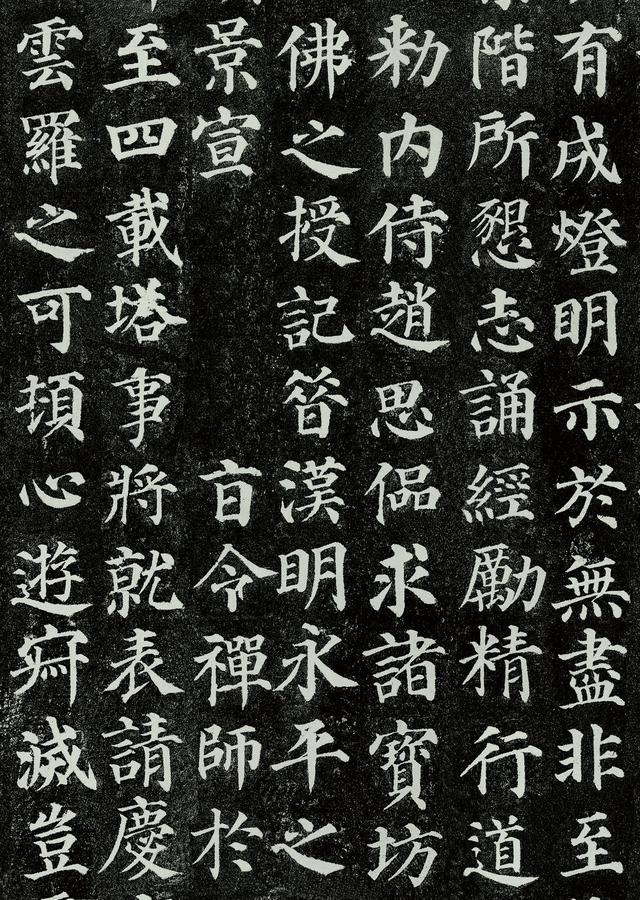 有成燈明示於無盡非至
階所懇志誦經勵精行道
勑内侍趙思偘求諸寶坊
佛之授記昔漢明永平之
景宣 㫖令禪師於
至四載塔事將就表請慶
雲羅之可頓心遊寂滅豈